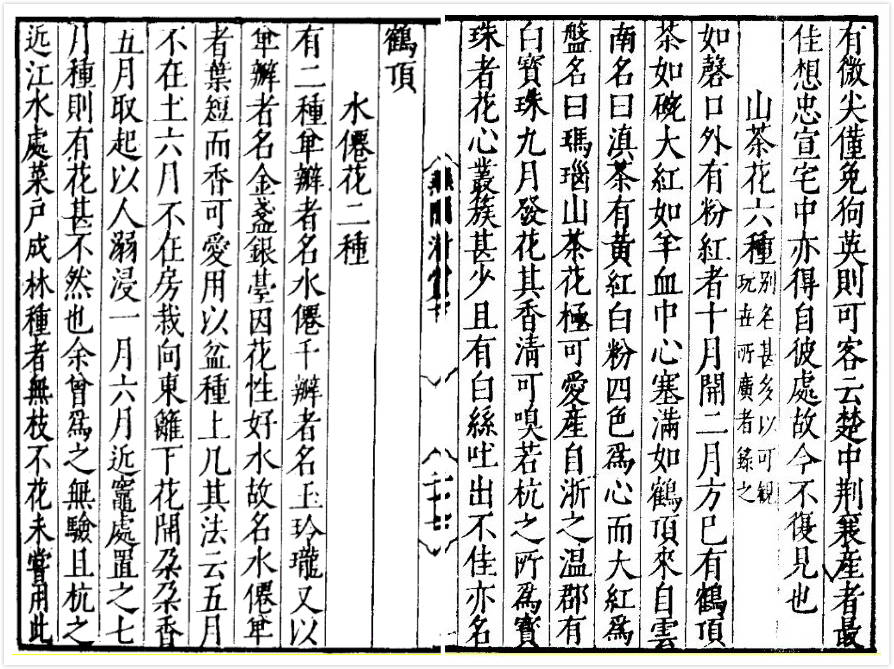 有微尖僅免狗英則可客云楚中荆襄産者最
佳想忠宣宅中亦得自彼處故今不復見也
山茶花六種別名甚多以可觀
玩世所廣者錄之
如磬口外有粉紅者十月開二月方已有鶴頂
茶如碗大紅如羊血中心塞滿如鶴頂來自雲
南名曰滇茶有黃紅白粉四色爲心而大紅爲
盤名曰瑪瑙山茶花極可愛産自浙之温郡有
白寶珠九月發花其香清可嗅若杭之所爲寶
珠者花心叢簇甚少且有白絲吐出不佳亦名
鶴頂
水僊花二種
有二種单瓣者名水僊千瓣者名玉玲瓏又以
单瓣者名金盞銀䑓因花性好水故名水僊单
者葉短而香可愛用以盆種上几其法云五月
不在土六月不在房栽向東籬下花開朶朶香
五月取起以人溺浸一月六月近竈處置之七
月種則有花甚不然也余曾爲之無驗且杭之
近江水處菜戶成林種者無枝不花未嘗用此